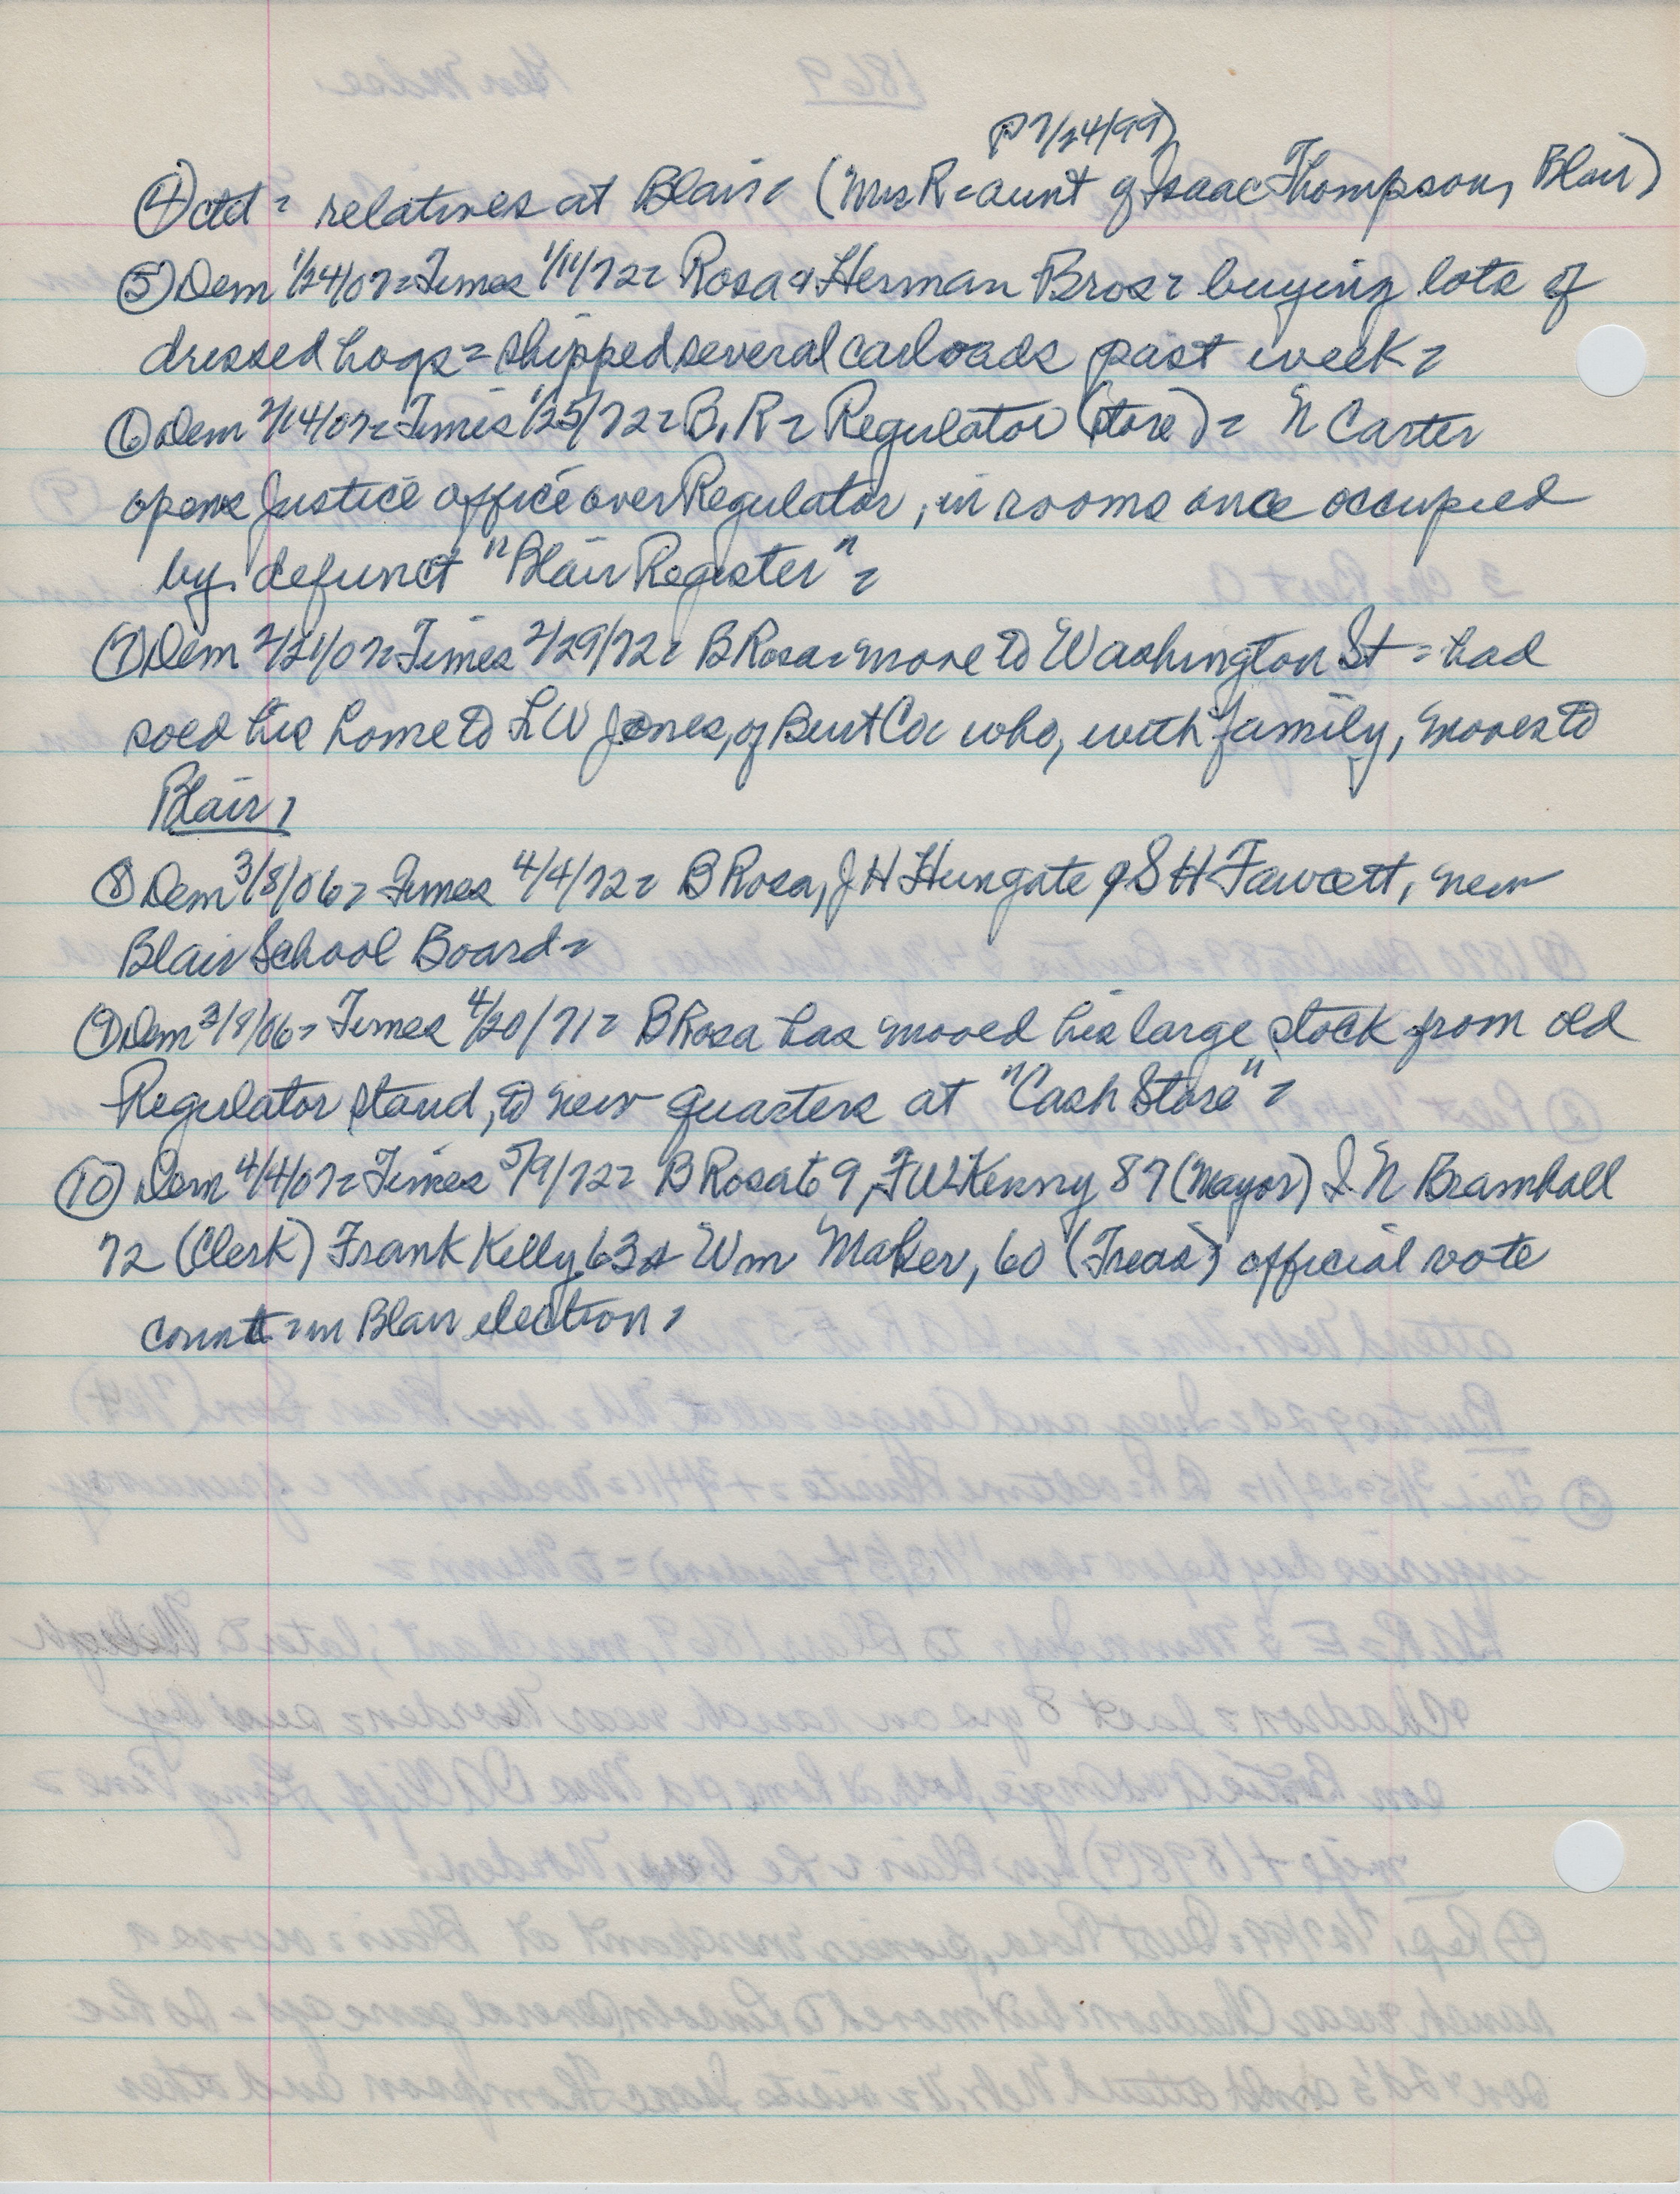 (P 7/24/99)
④ ctd = relatives at Blair = (Mrs R = aunt of Isaac Thompson, Blair)
⑤ Dem 1/24/07 = Times 1/11/72 = Rosa & Herman Bros = buying lots of
dressed hogs = shipped several carloads past week =
⑥ Dem 2/14/07 = Times 1/25/72 = B. R = Regulator (store) = N Carter
opens Justice office over Regulator, in rooms once occupied
by defunct "Blair Register" =
⑦ Dem 2/21/07 = Times 2/29/72 = B Rosa = move to Washington St = had
sold his home to L W Jones, of Burt Co who, with family, moves to
Blair =
⑧ Dem 3/8/06 = Times 4/4/72 = B Rosa, J H Hungate & S H Fawcett, new
Blair School Board =
⑨ Dem 3/8/06 = Times 4/20/71 = B Rosa has moved his large stock from old
Regulator stand, to new quarters at "Cash Store" =
⑩ Dem 4/4/07 = Times 5/9/72 = B Rosa 69, F W Kenny 87 (Mayor) I. N Bramhall
72 (Clerk) Frank Kelly 63 & Wm Maher, 60 (Treas) official vote
count = in Blair election =